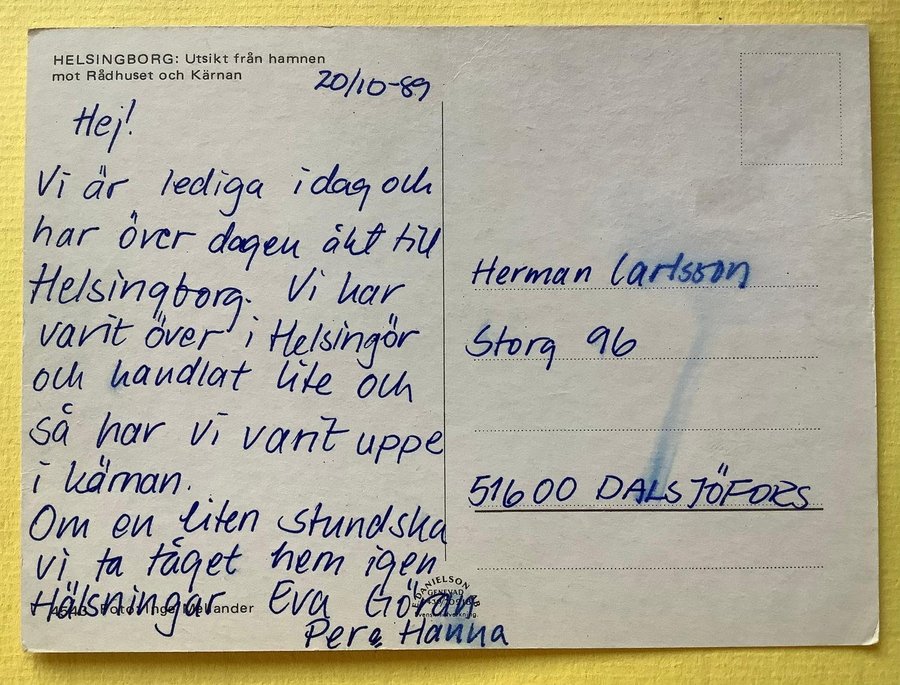 HELSINGBORG: Utsikt från hamnen
mot Rådhuset och Kärnan
20/10-89
Hej!
Vi är lediga idag och
har över dagen åkt till
Helsingborg. Vi har
varit över i Helsingör
och handlat lite och
så har vi varit uppe
i kärnan.
Om en liten stund ska
vi ta tåget hem igen
Hälsningar Eva Göran
Per e Hanna
Foto: Inge Mellander
Herman Carlsson
Storg 96
51600 DALSJÖFORS
DANIELSON
GENEVAD